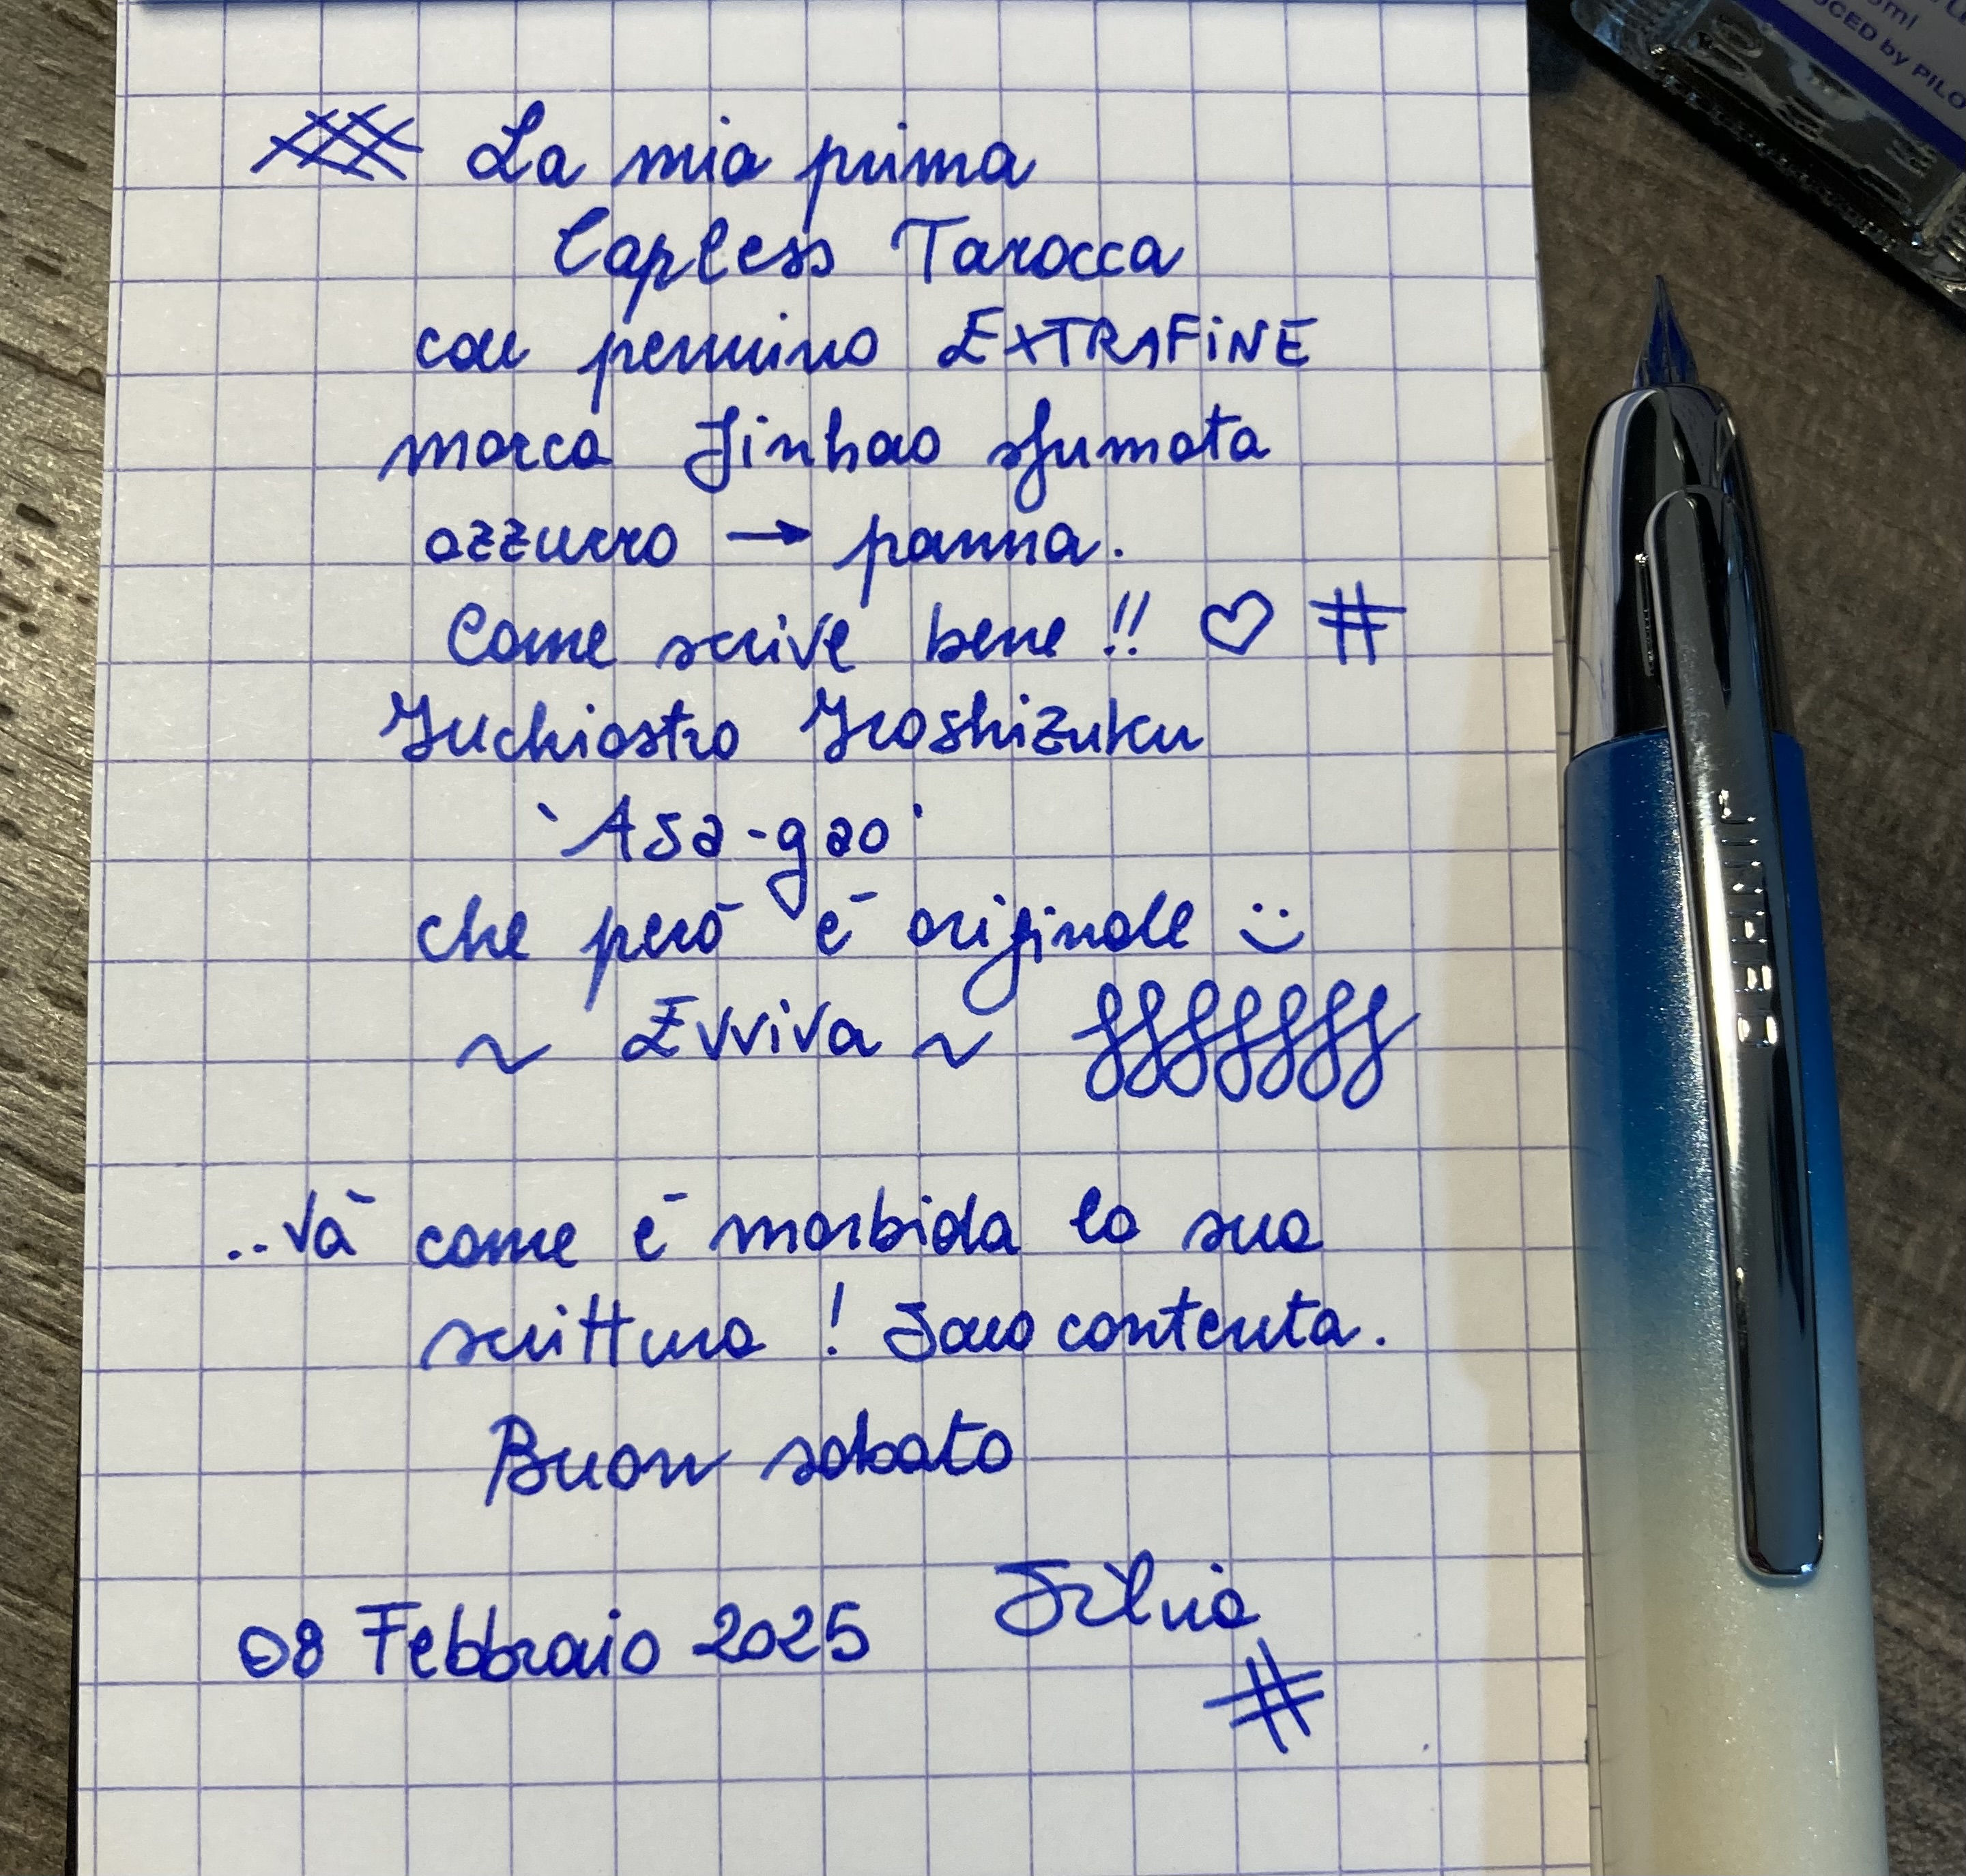 La mia prima
Capless Tarocca
con pennino EXTRAFINE
marca Jinhao sfumata
azzurro → panna.
Come scrive bene!! ♡ #
Inchiostro Iroshizuku
`Asa-gao'
che però è originale :)
~ Evviva ~
..và come è morbida la sua
scrittura! Sono contenta.
Buon sabato
Silvia
08 Febbraio 2025
#
JINHAO
5ml
CED by PILO